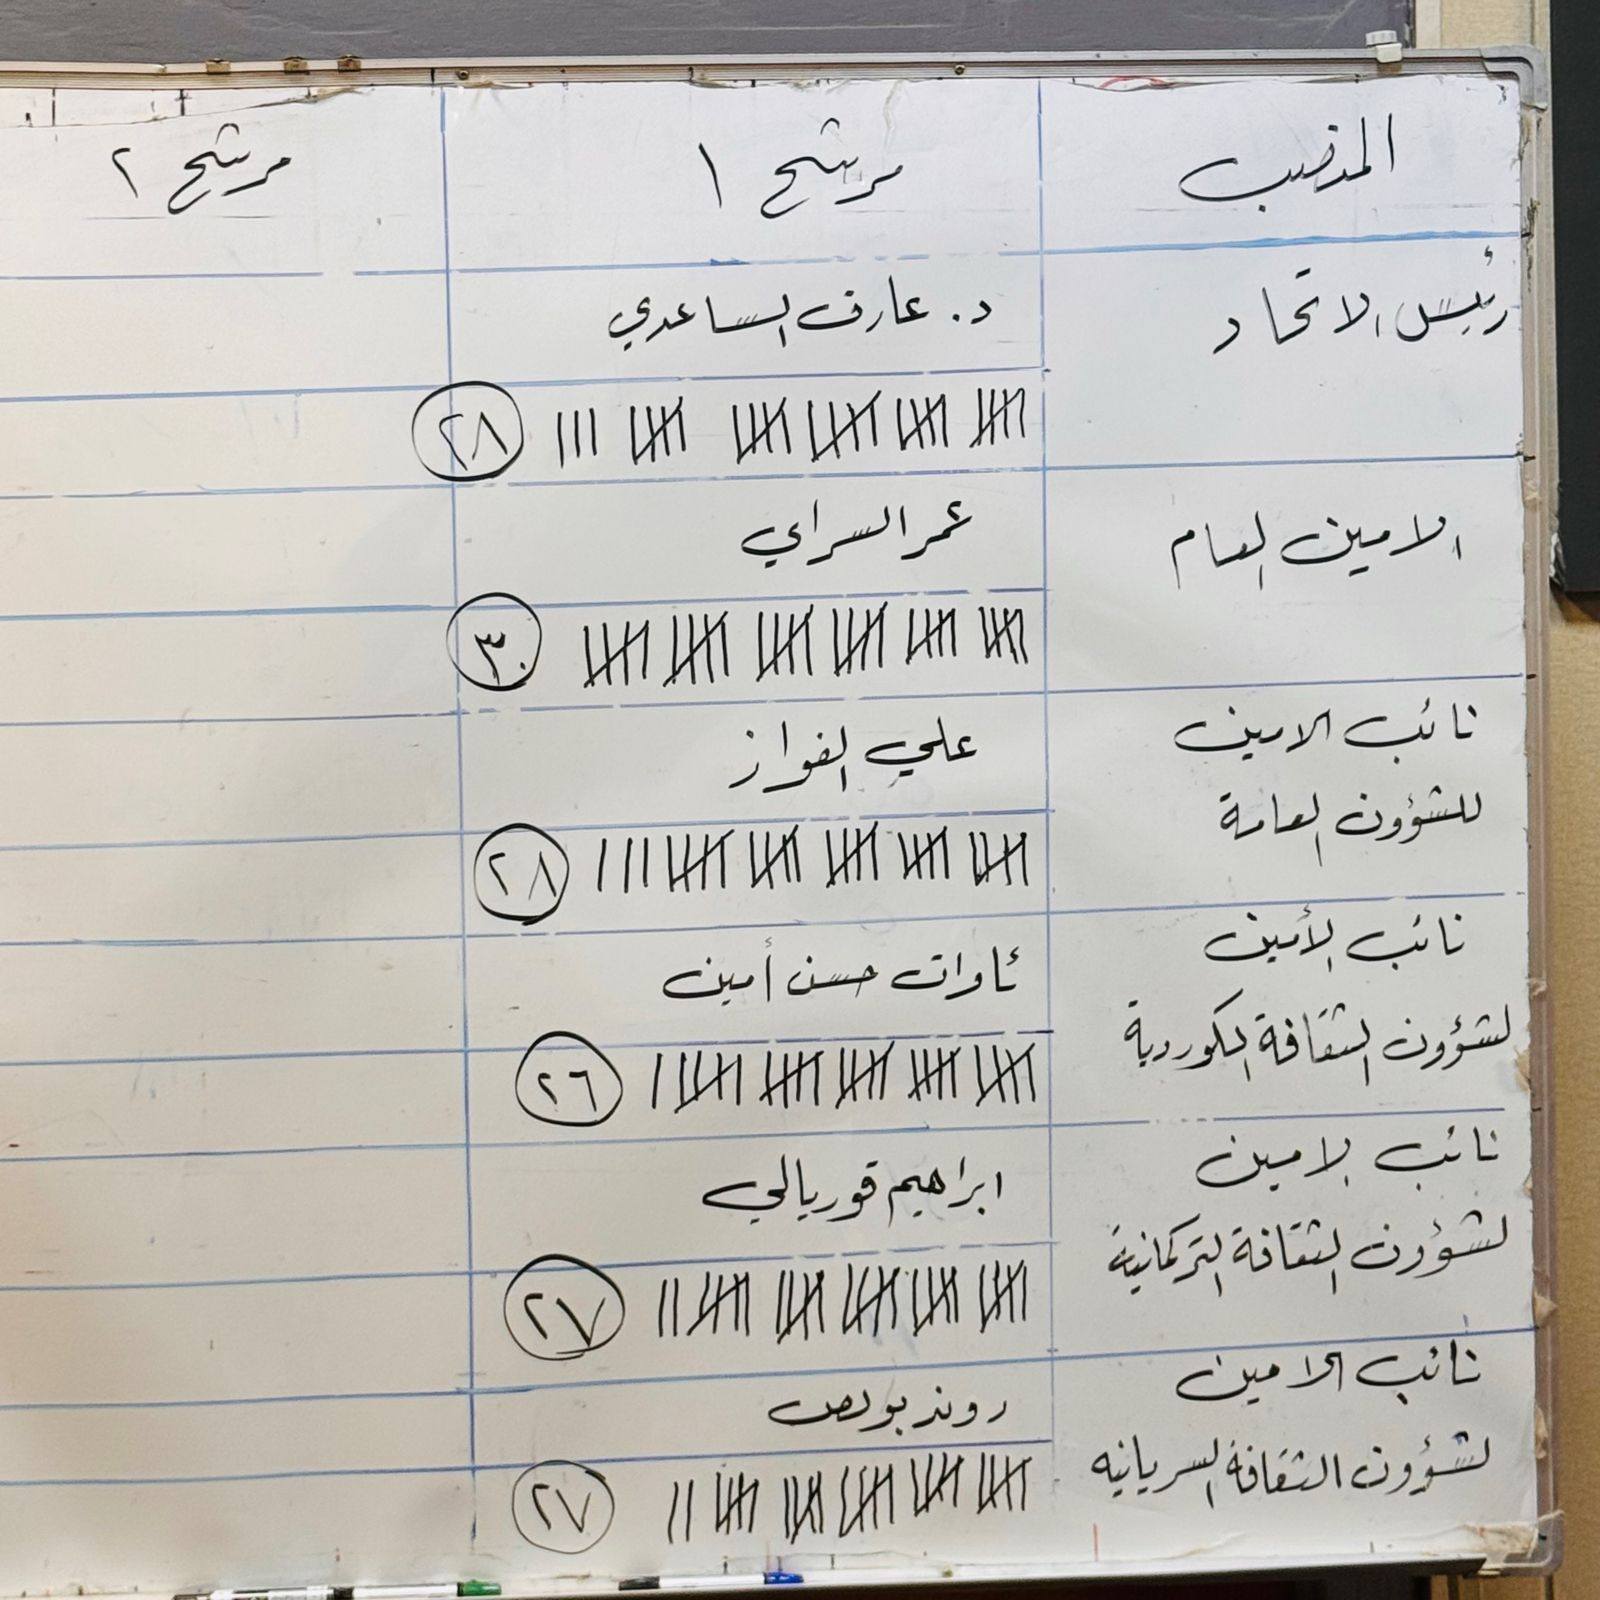 المنصب مرشح ١ مرشح ٢
رئيس الاتحاد
د. عارف الساعدي
٢٨
الامين العام
عمر السراي
٣٠
نائب الامين
للشؤون العامة
علي الفواز
٢٨
نائب الأمين
لشؤون الثقافة الكوردية
ئاوات حسن أمين
٢٦
نائب الامين
لشؤون الثقافة التركمانية
ابراهيم قوريالي
٢٧
نائب الامين
لشؤون الثقافة السريانيه
روند بولص
٢٧